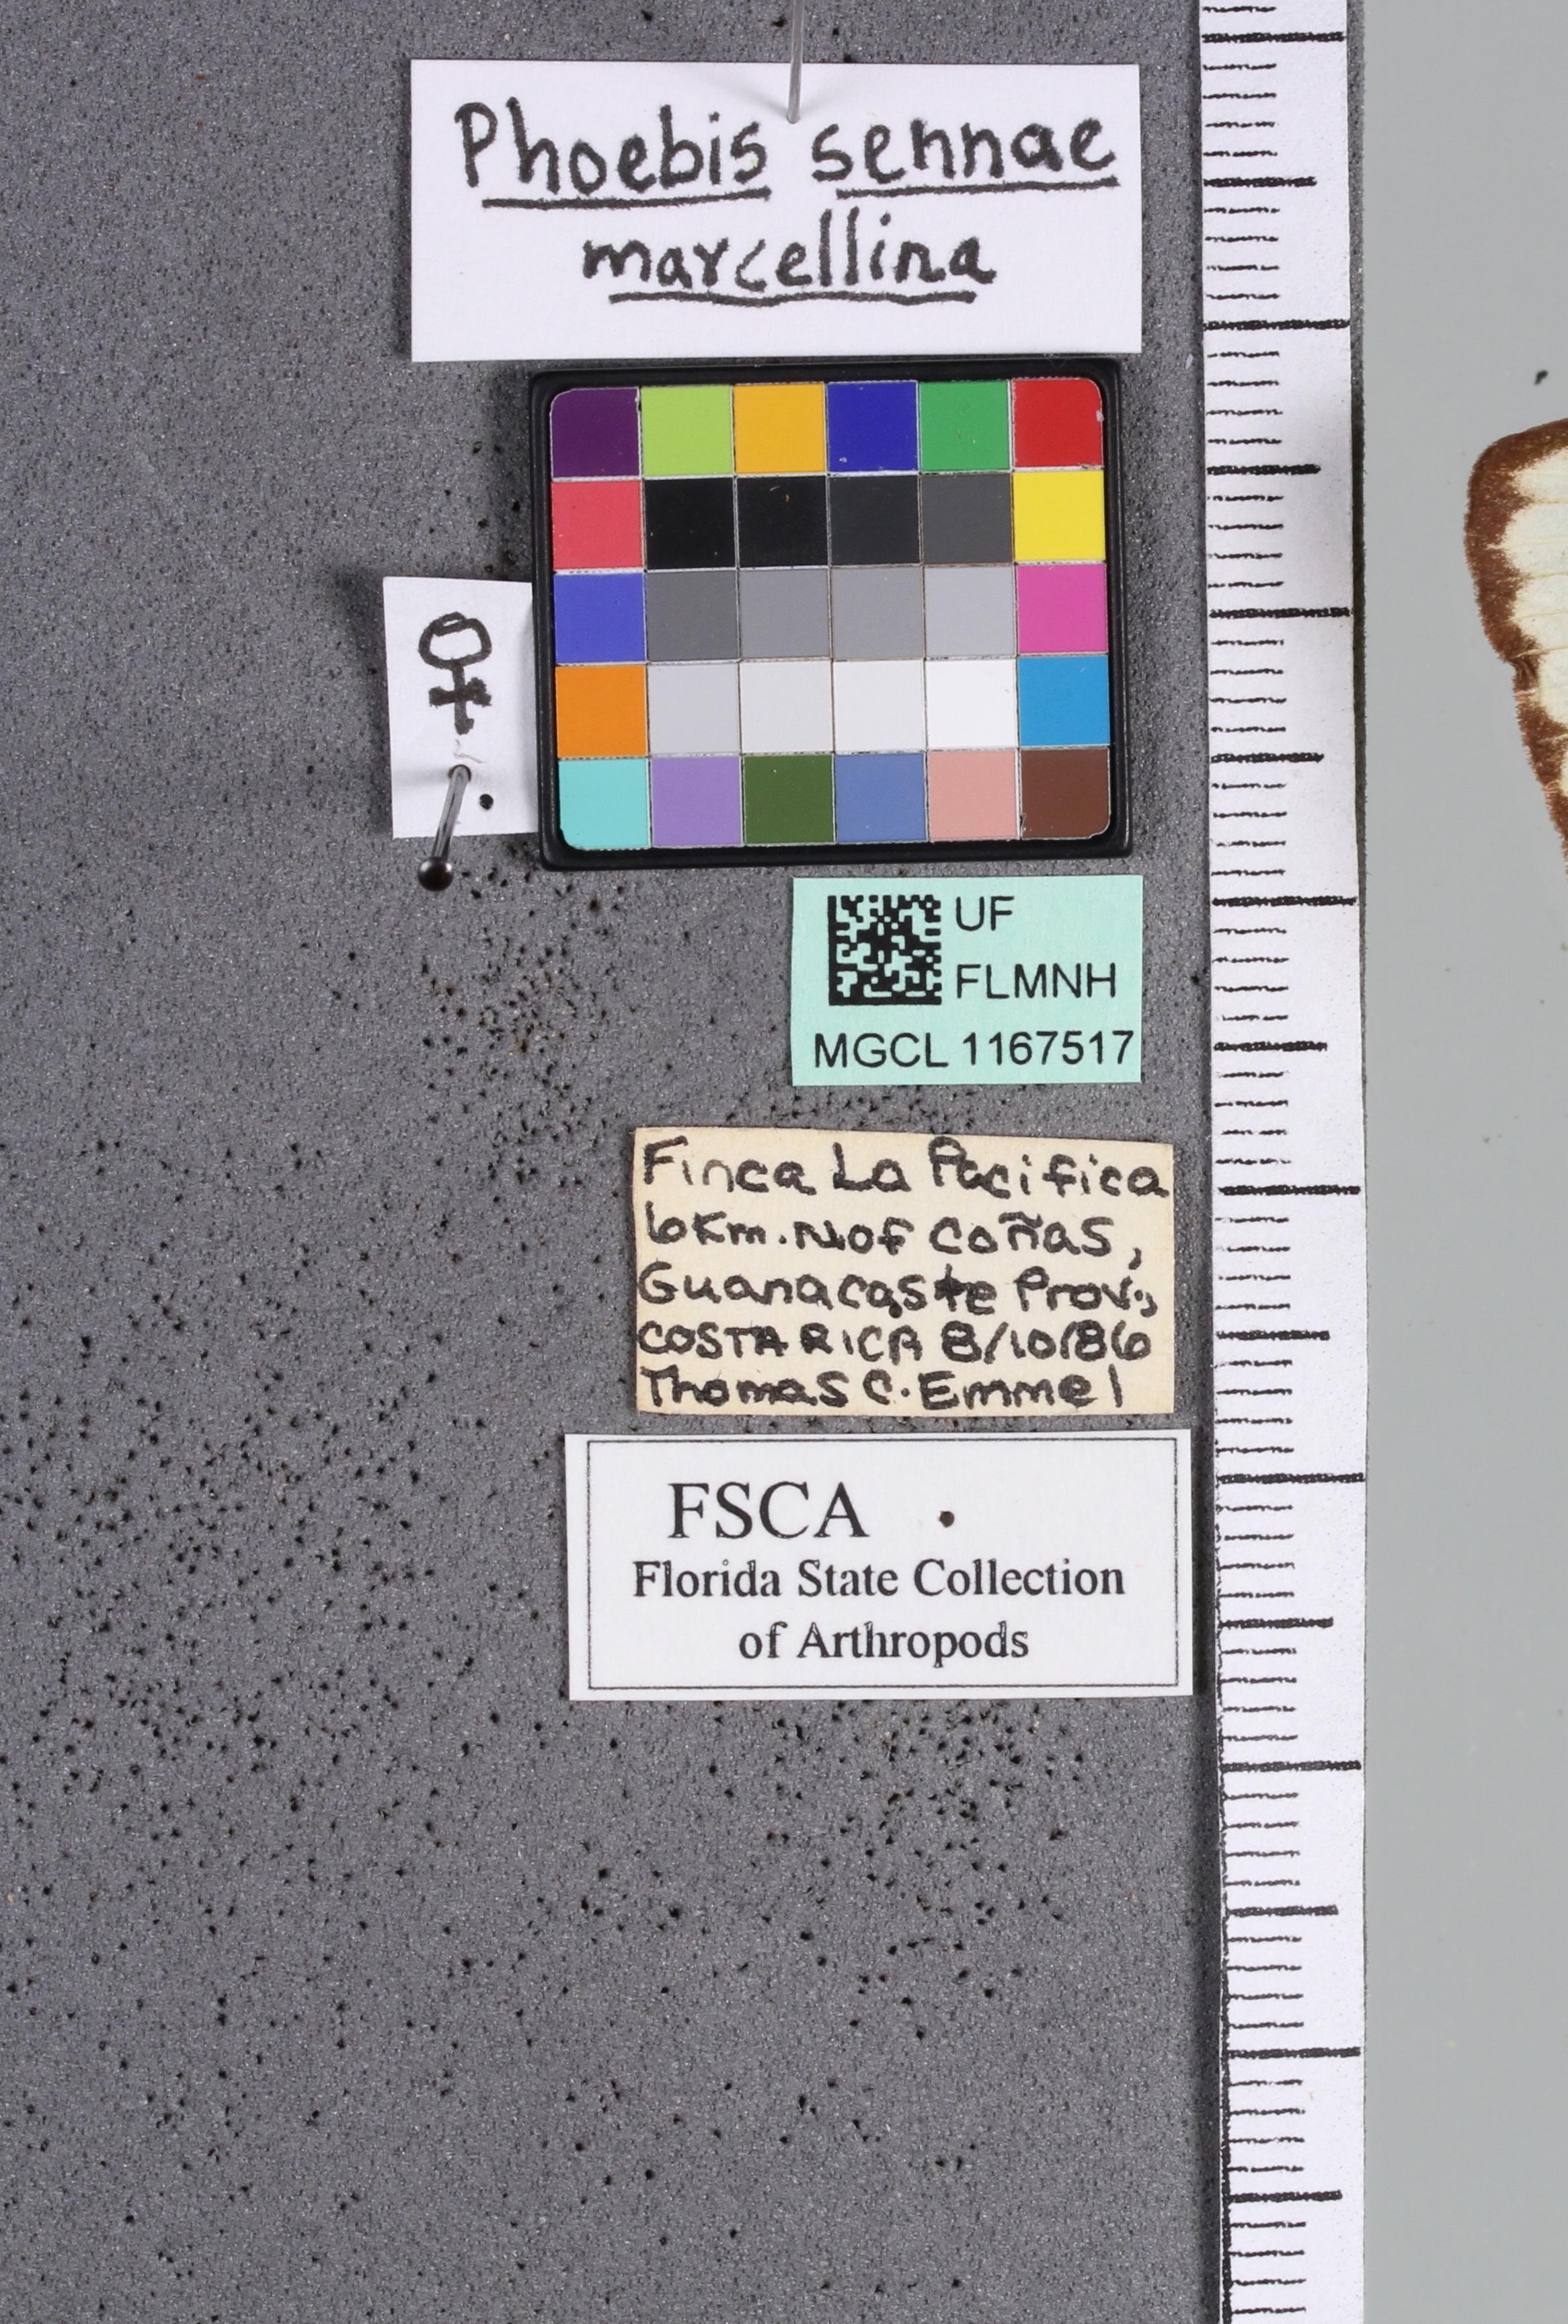 Phoebis sennae
marcellina
♀
UF
FLMNH
MGCL 1167517
Finca La Pacifica
6 Km. N of Coñas,
Guanacaste Prov.,
COSTA RICA 8/10/86
Thomas C. Emmel
FSCA
Florida State Collection
of Arthropods